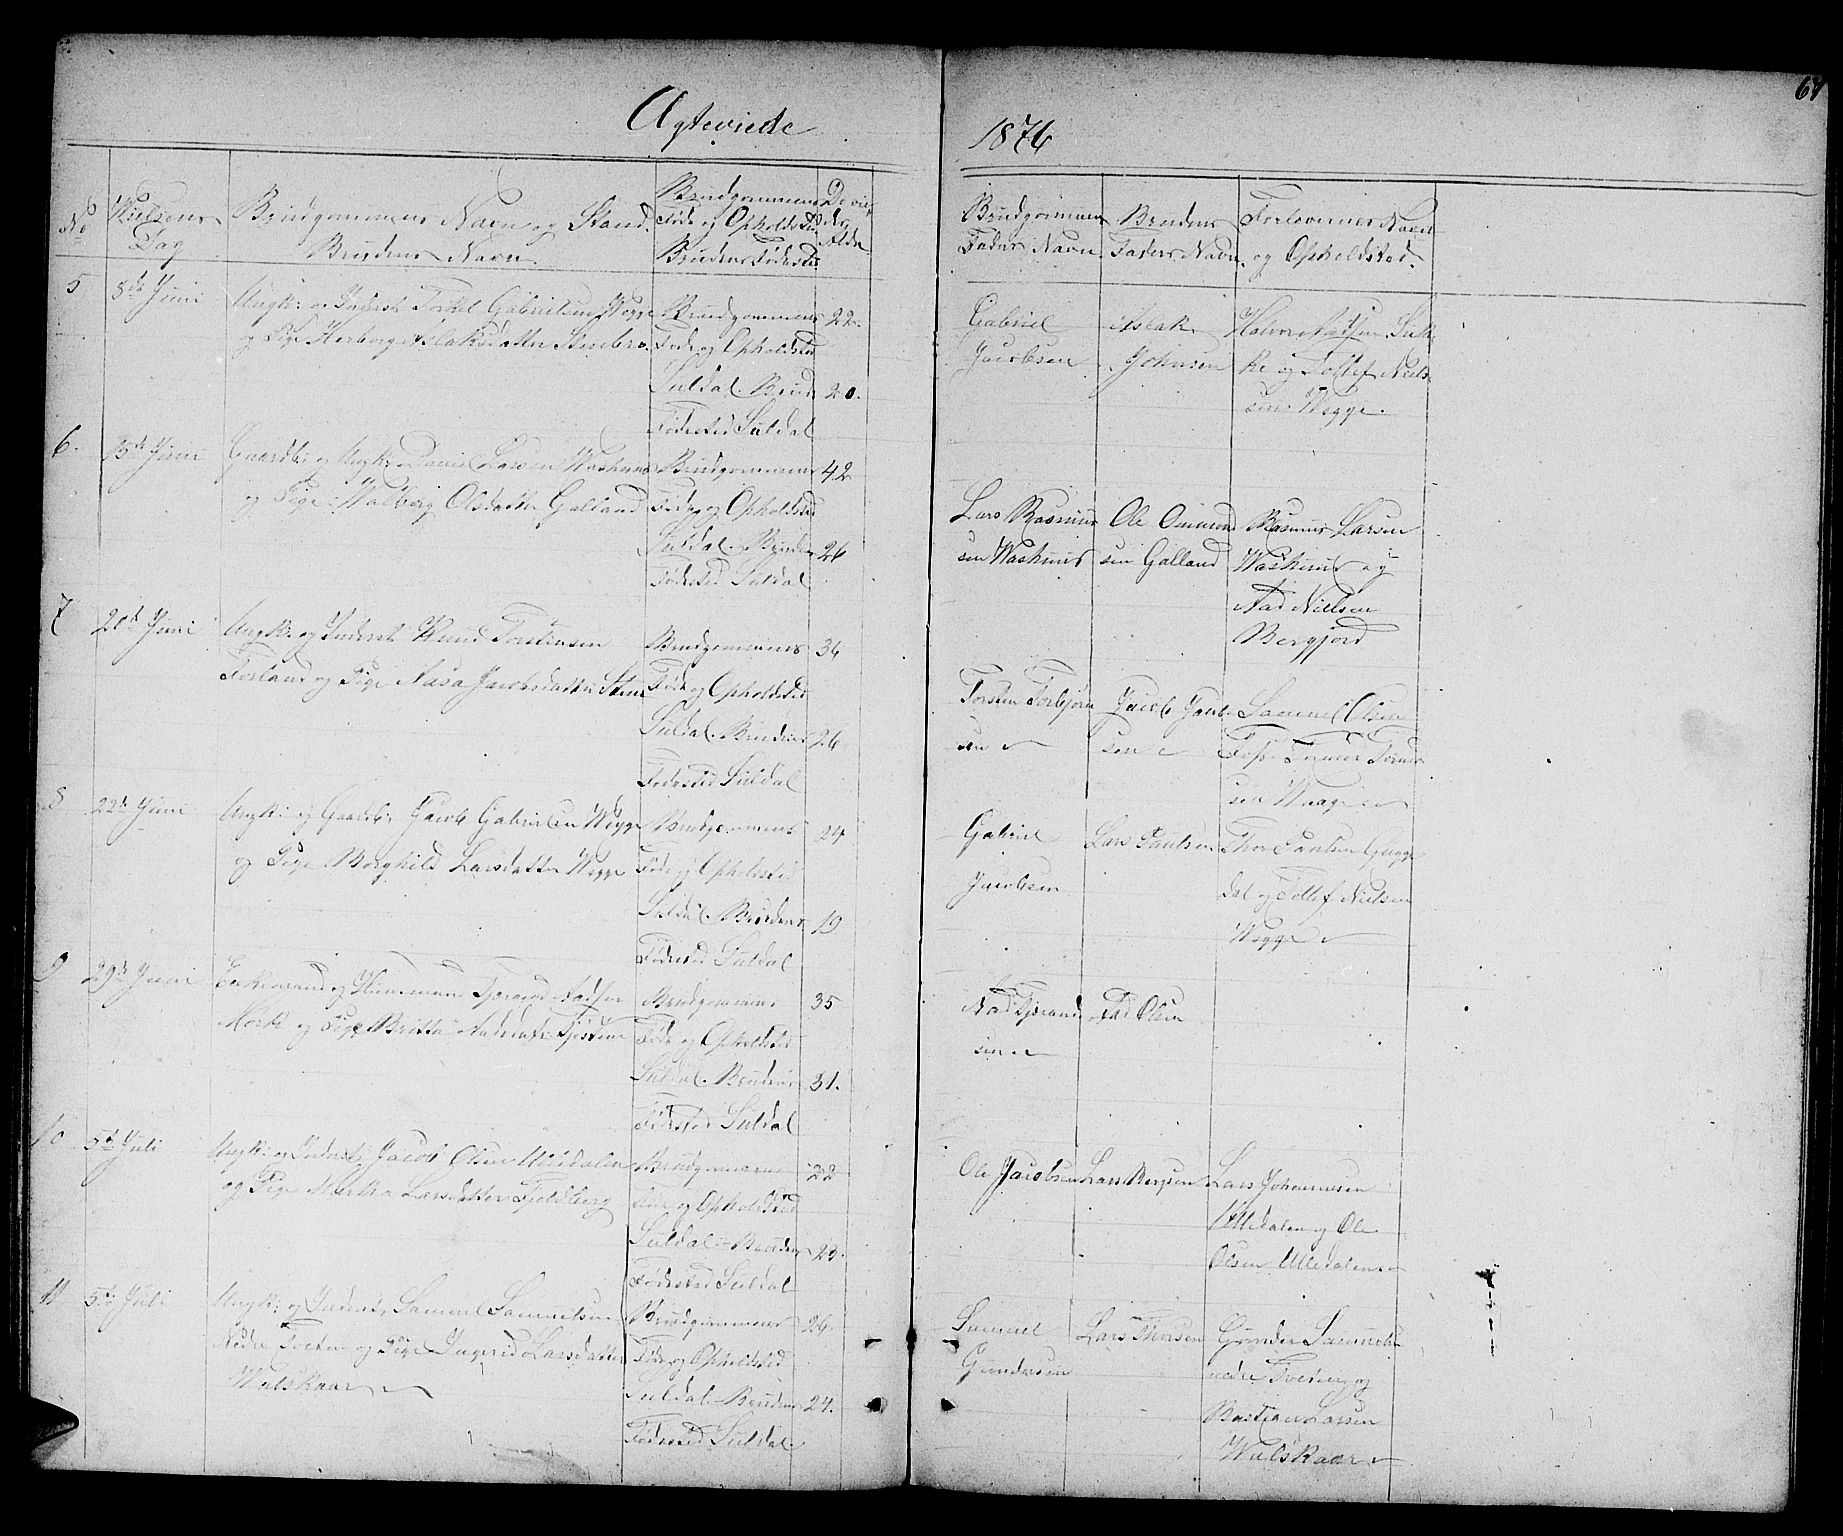 Ægteviede
1876
No
Vielsens Dag
Brudgommens Navn og Stand.
Brudens Navn.
Brudgommens
Føde og Opholdssted
Brudens Fødested
De viedes Alder
Brudgommens
Faders Navn
Brudens
Faders Navn.
Forlovernes Navn
og Opholdsted.
5
8de Juni
Ungk: og Inderst Torkel Gabrielsen Wegge
og Pige Herborg Aslaksdatter Stenbro.
Brudgommens
Føde og Opholdsted
Suldal. Brud
Fødested Suldal
22.
20.
Gabriel
Jacobsen
Aslak
Johnsen
Halvor
Ke og Tollef Niel-
sen Wegge.
6.
15de Juni
Gaardbr. og Ungk: Daniel Larsen Washuus
og Pige Walborg Olsdatter Galland
Brudgommens
Føde og Opholdsted
Suldal. Brudens
Fødested Suldal
42
26
Lars Rasmus
sen Washuus
Ole Ommund
sen Galland
Rasmus Larsen
Washuus og
Aad Nielsen
Bergjord
7
20de Juni
Ungk: og Inderst Knud Torstensen
Forland og Pige Aasa Jacobsdatter Steen
Brudgommens
Føde og Opholdsted
Suldal. Brudens
Fødested Suldal
36
26
Torsten Torbjørn
sen
Jacob Jacob-
sen
Samuel Olsen
Foss Tormor Tormo
sen Waage
8
22de Juni
Ungk: og Gaardb: Jacob Gabrielsen Wegge
og Pige Borghild Larsdatter Wegge
Brudgommens
Føde og Opholdsted
Suldal. Brudens
Fødested Suldal
24
19
Gabriel
Jacobsen
Lars Paulsen
Thor Paulsen Gugge
dal og Tollef Nielsen
Wegge
9
29de Juni
Enkemand og Huusmand Tjerand Aadsen
Mørk og Pige Britta Aadsdatter
Brudgommens
Føde og Opholdsted
Suldal. Brudens
Fødested Suldal
35
31.
Aad Tjerand
sen
Aad Olsen
10
5te Juli
Ungk: og Inderst: Jacob Olsen Ulledalen
og Pige Martha Larsdatter Fjeldberg
Brudgommens
Føde og Opholdsted
Suldal. Brudens
Fødested Suldal
22
23.
Ole Jacobsen
Lars Bergesen
Lars Johannesen
Ulledalen og Ole
Olsen Ulledalen
11
5te Juli
Ungk: og Inderst, Samuel Samuelsen
Nedre Tveten og Pige Ingerid Larsdatter
Walskaar
Brudgommens
Føde og Opholdsted
Suldal. Brudens
Fødested Suldal.
26
24.
Samuel
Gundersen
Lars Thorsen
Gunder Samuelsen
nedre Tveten og
Bastian Larsen
Walskaar